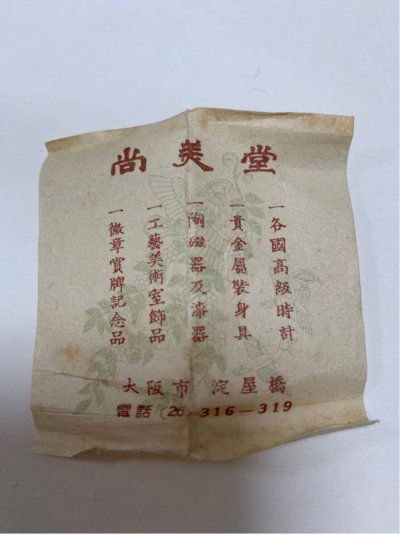 尚美堂
一各國高級時計
一貴金屬裝身具
一陶磁器及漆器
一工藝美術室飾品
一徽章賞牌記念品
大阪市 淀屋橋
電話 (26. 316—319